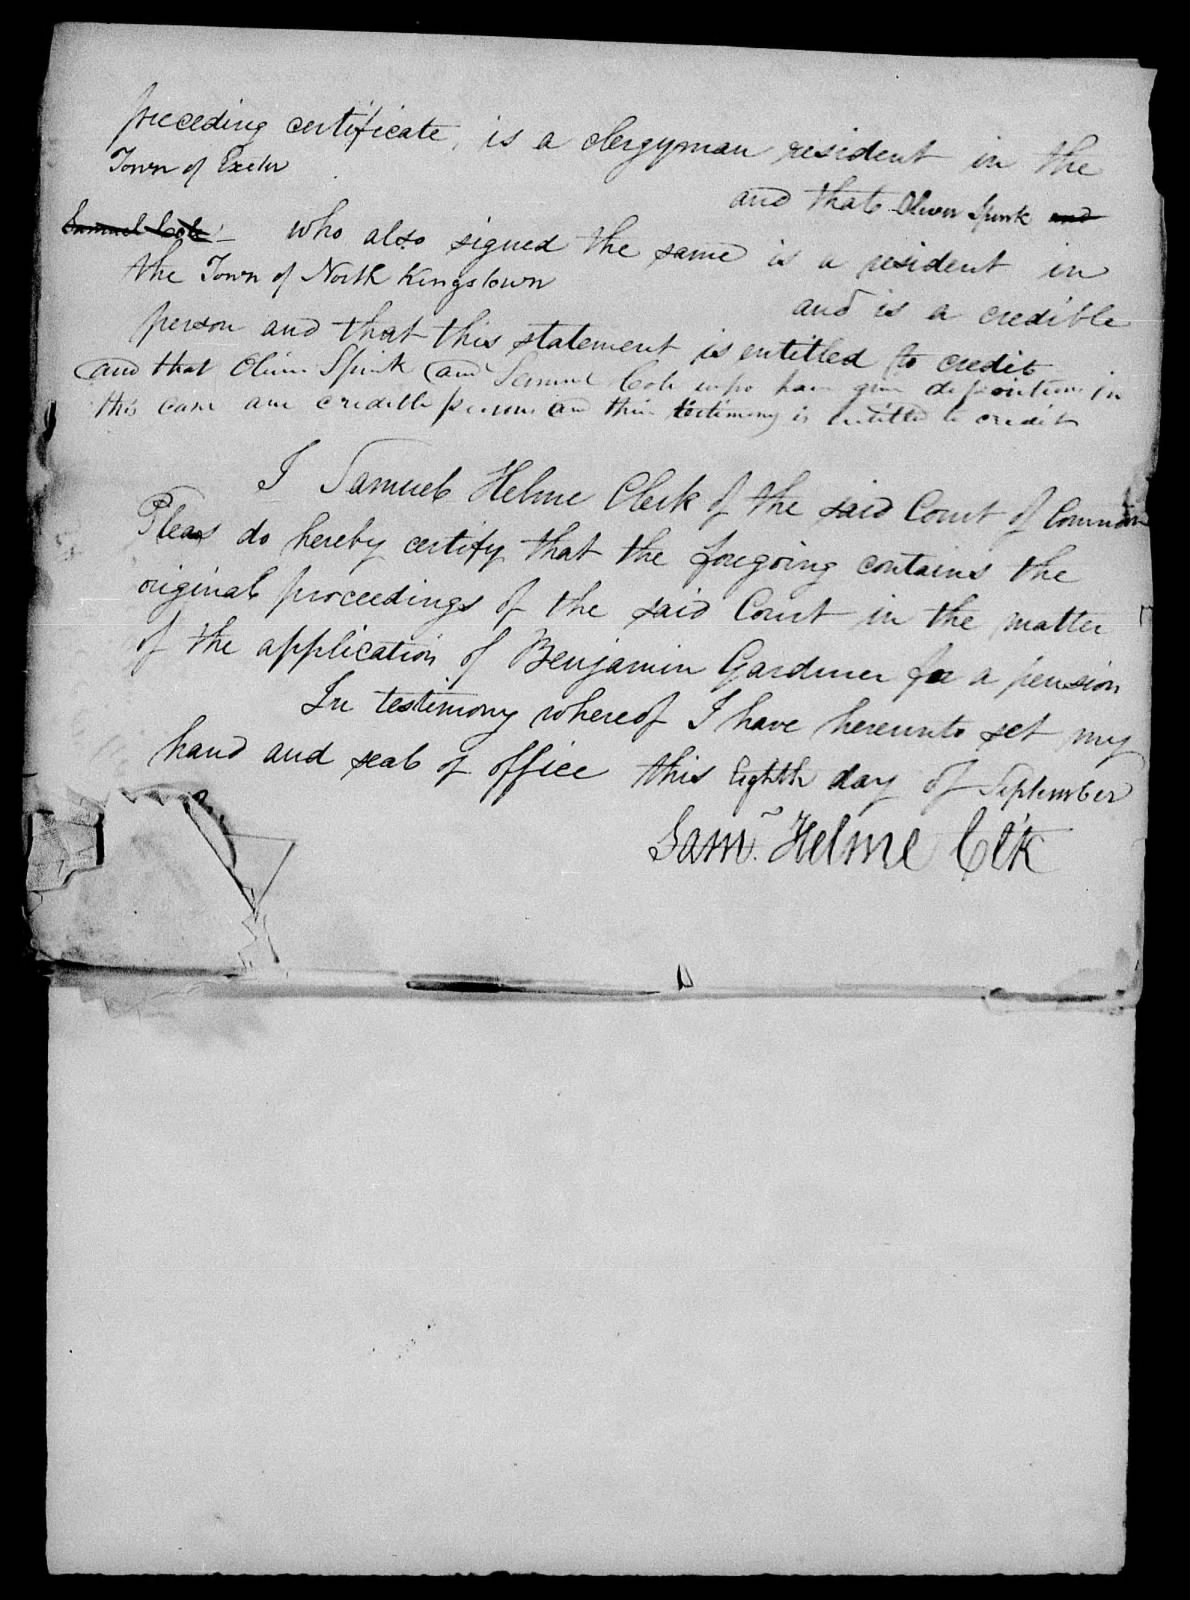 preceding certificate, is a clergyman resident in the
Town of Exeter
and that Oliver Spink and
Samuel Cole who also signed the same is a resident in
the Town of North Kingstown
and is a credible
person and that this statement is entitled to credit
and that Oliver Spink and Samuel Cole who have given depositions in
this case are credible persons and their testimony is entitled to credit
I Samuel Helme Clerk of the said Court of Common
Pleas do hereby certify that the foregoing contains the
original proceedings of the said Court in the matter
of the application of Benjamin Gardiner for a pension
In testimony whereof I have hereunto set my
hand and seal of office this Eighth day of September
Sam. Helme Clk